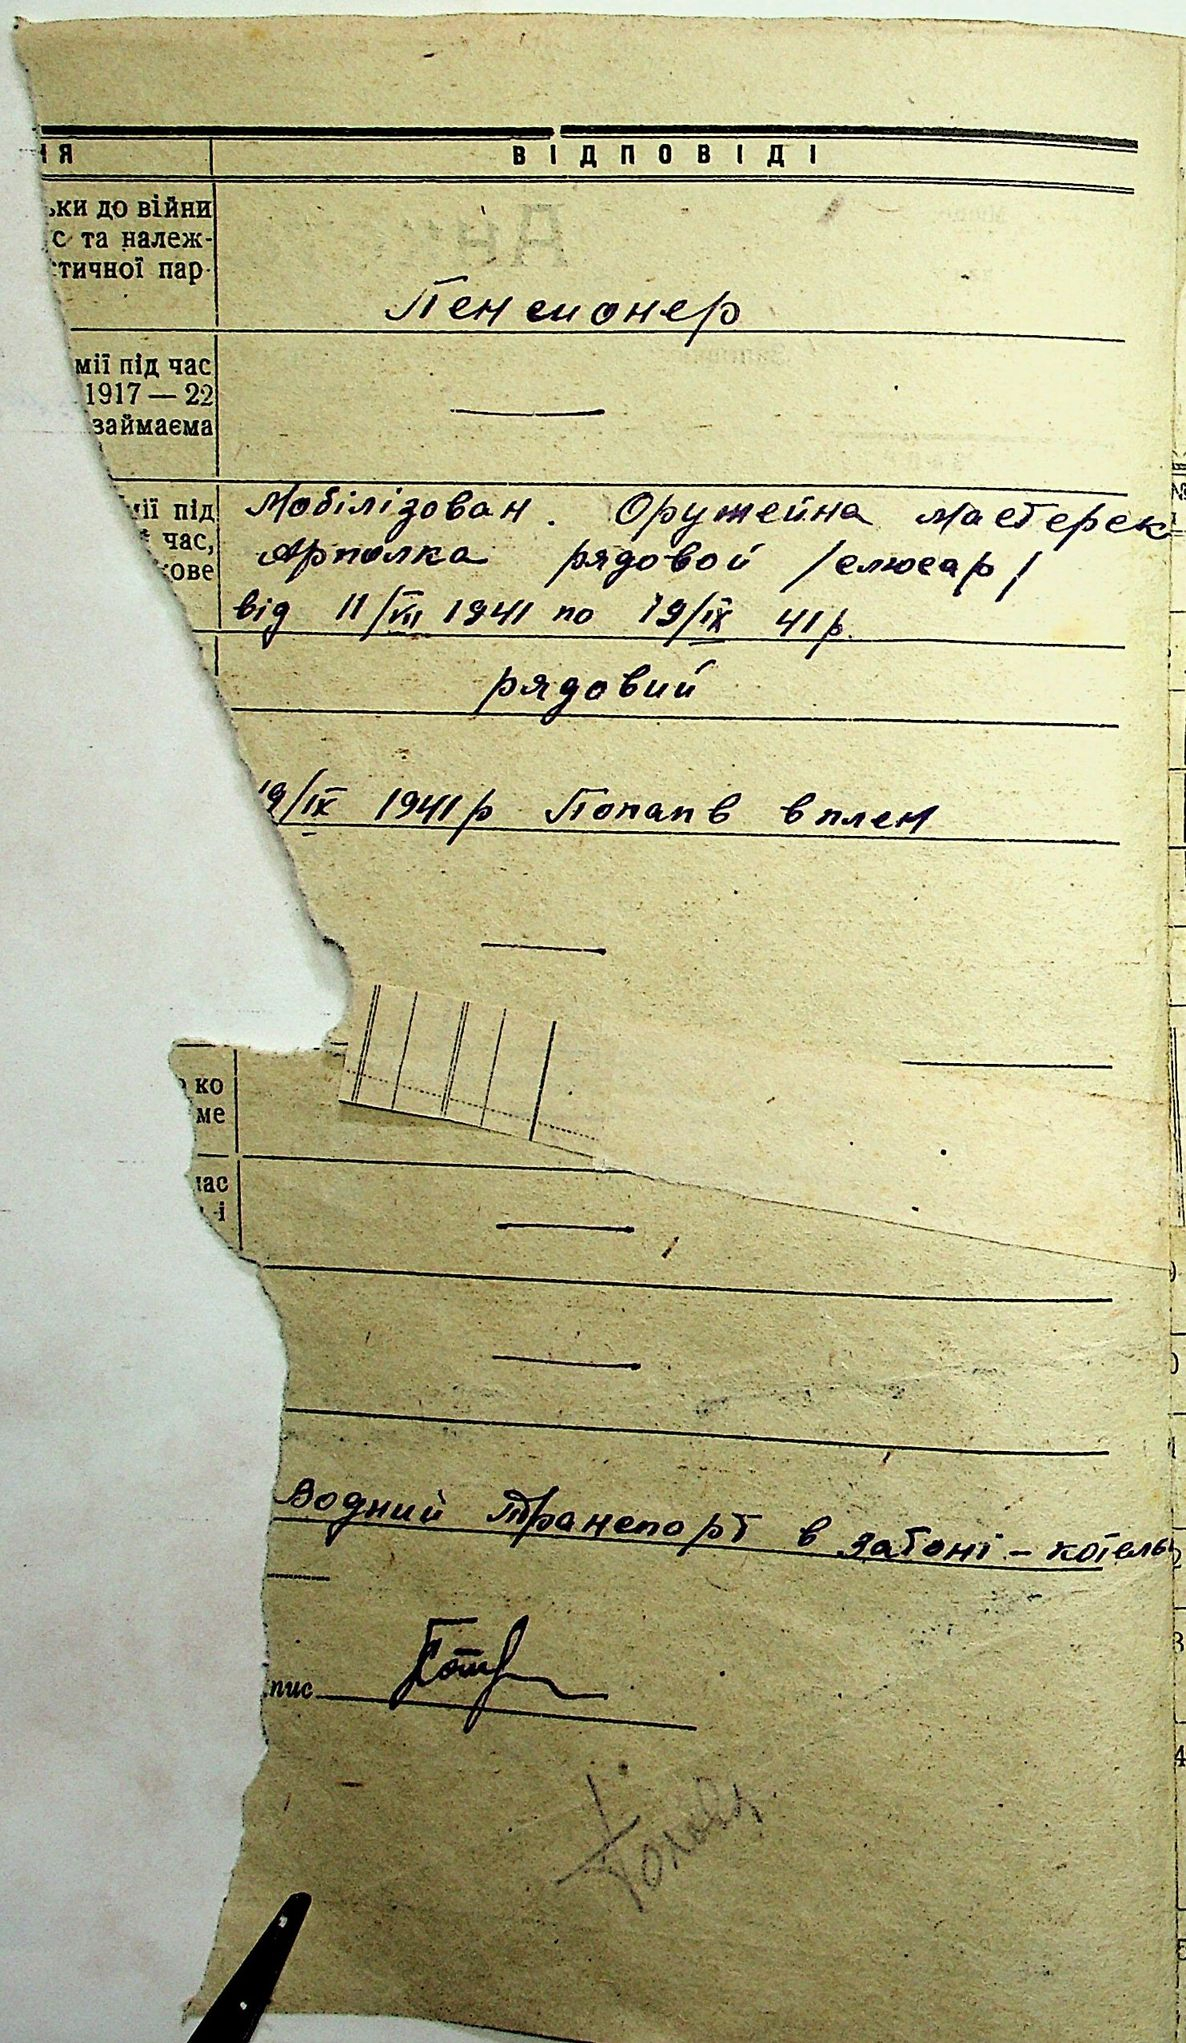 ня ВІДПОВІДІ
ьки до війни
с та належ-
тичної пар-
Пенсионер
мії під час
1917 — 22
займаєма
мії під
час,
кове
Мобілізован. Оружейна мастерск
Арполка рядовой /слюсар/
від 11/VII 1941 по 19/IX 41 р.
рядовий
19/IX 1941 р Попап в в плен
ко
ме
час
і
Водний транспорт в затоні - котель
пис